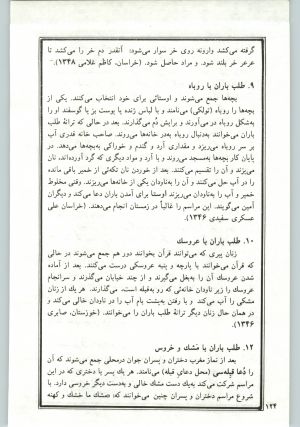 گرفته می‌کشد وارونه روی خر سوار می‌شود؛ آنقدر دم خر را می‌کشد تا
عرعر خر بلند شود. و مراد حاصل شود. (خراسان، کاظم غلامی ۱۳۴۸).
۹. طلب باران با روباه
بچه‌ها جمع می‌شوند و اوستائی برای خود انتخاب می‌کنند. یکی از
بچه‌ها را روباه (تولکی) می‌نامند و با لباس ژنده یا پوست بز یا گوسفند او را
به‌شکل روباه در می‌آورند و برایش دُم می‌گذارند. بعد در حالی که ترانهٔ طلب
باران می‌خوانند به‌دنبال روباه به‌در خانه‌ها می‌روند. صاحب خانه قدری آب
بر سر روباه می‌ریزد و مقداری آرد و گندم و خوراکی به‌بچه‌ها می‌دهد. در
پایان کار بچه‌ها به‌مسجد می‌روند و با آرد و مواد دیگری که گرد آورده‌اند، نان
می‌پزند و آن را تقسیم می‌کنند. بعد از خوردن نان تکه‌ئی از خمیر باقی مانده
را در آب حل می‌کنند و آن را به‌ناودان یکی از خانه‌ها می‌ریزند. وقتی مخلوط
خمیر و آب را به‌ناودان می‌ریزند اوستا برای آمدن باران دعا می‌کند و دیگران
آمین می‌گویند. این مراسم را غالباً در زمستان انجام می‌دهند. (خراسان علی
عسکری سفیدی ۱۳۴۶).
۱۰. طلب باران با عروسك
زنان پیری که می‌توانند قرآن بخوانند دور هم جمع می‌شوند در حالی
که قرآن می‌خوانند با پارچه و پنبه عروسکی درست می‌کنند. بعد از آماده
شدن عروسك آن را به‌بغل می‌گیرند و از چند خیابان می‌گذرند و سرانجام
عروسك را زیر ناودان خانه‌ئی که رو به‌قبله است، می‌گذارند. هر یك از زنان
مشکی را آب می‌کند و با رفتن به‌پشت بام آب را در ناودان خالی می‌کند و
در همان حال زنان دیگر ترانهٔ طلب باران را می‌خوانند. (خوزستان، صابری
۱۳۴۶).
۱۲. طلب باران با مَشك و خروس
بعد از نماز مغرب دختران و پسران جوان درمحلی جمع می‌شوند که آن
را دُعا قبله‌سی (محل دعای قبله) می‌نامند. هر یك پسر یا دختری که در این
مراسم شرکت می‌کند به‌یك دست مشك خالی و به‌دست دیگر خروسی دارد. با
شروع مراسم دختران و پسران چنین می‌خوانند که: «مشك ما خشك و کهنه
۱۲۴